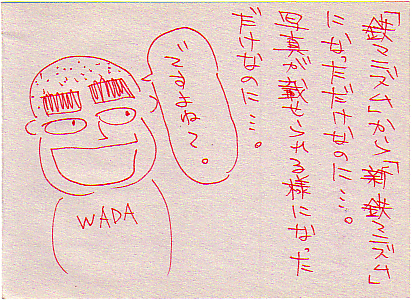 「鉄マニズム」から「新・鉄マニズム」
になっただけなのに……。
写真が載せられる様になった
だけなのに……。
ですよね〜。
WADA